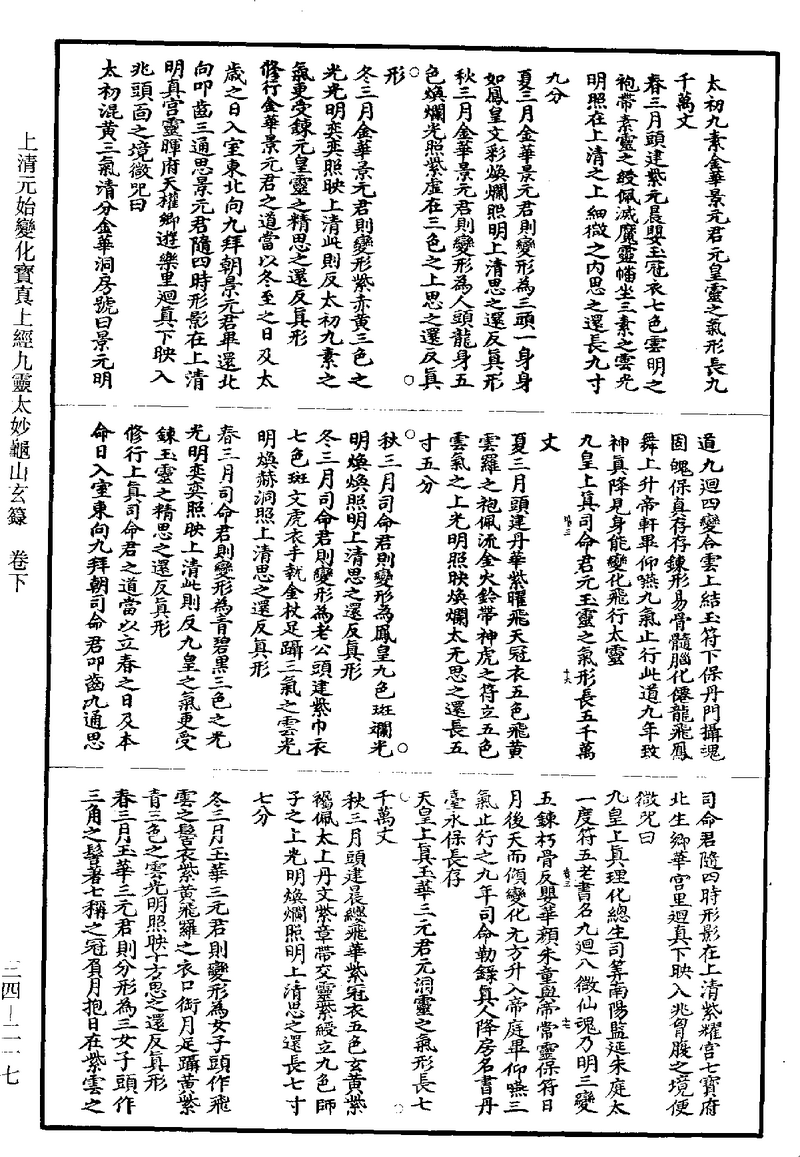 太初九素金華景元君元皇靈之氣形長九
千萬丈
春三月頭建紫元晨嬰玉冠衣七色雲明之
袍帶素靈之綬佩滅魔靈幡坐三素之雲光
明照在上清之上細微之內思之還長九寸
九分
夏三月金華景元君則變形為三頭一身身
如鳳皇文彩煥爛照明上清思之還反真形
秋三月金華景元君則變形為人頭龍身五
色煥爛光照紫虛在三色之上思之還反真
形
冬三月金華景元君則變形紫赤黃三色之
光光明奕奕照映上清此則反太初九素之
氣更受鍊元皇靈之精思之還反真形
修行金華景元君之道當以冬至之日及太
歲之日入室東北向九拜朝景元君畢還北
向叩齒三通思景元君隨四時形影在上清
明真宮靈暉府天權鄉遊樂里迴真下映入
兆頭面之境微咒曰
太初混黃三氣清分金華洞房號曰景元明
道九迴四變合雲上結玉符下保丹門攝魂
固魄保真存存鍊形易骨髓腦化僊龍飛鳳
舞上升帝軒畢仰嚥九氣止行此道九年致
神真降見身能變化飛行太靈
九皇上真司命君元玉靈之氣形長五千萬
丈
夏三月頭建丹華紫曜飛天冠衣五色飛黃
雲羅之袍佩流金火鈴帶神虎之符立五色
雲氣之上光明照映煥爛太无思之還長五
寸五分
秋三月司命君則變形為鳳皇九色斑爛光
明煥煥照明上清思之還反真形
冬三月司命君則變形為老公頭建紫巾衣
七色斑文虎衣手執金杖足躡三氣之雲光
明煥赫洞照上清思之還反真形
春三月司命君則變形為青碧黑三色之光
光明奕奕照映上清此則反九皇之氣更受
鍊玉靈之精思之還反真形
修行上真司命君之道當以立春之日及本
命日入室東向九拜朝司命君叩齒九通思
司命君隨四時形影在上清紫耀宮七寶府
北生鄉華宮里迴真下映入兆胷腹之境便
微咒曰
九皇上真理化總生司筭南陽監延朱庭太
一度符五老書名九迴八微仙魂乃明三變
五鍊朽骨反嬰華顏朱童與帝常靈保符日
月後天而傾變化无方升入帝庭畢仰嚥三
氣止行之九年司命勒錄真人降房名書丹
臺永保長存
天皇上真玉華三元君元洞靈之氣形長七
千萬丈
秋三月頭建晨纓飛華紫冠衣五色玄黃紫
褐佩太上丹文紫章帶交靈紫綬立九色師
子之上光明煥爛照明上清思之還長七寸
七分
冬三月玉華三元君則變形為女子頭作飛
雲之髻衣紫黃飛羅之衣口銜月足躡黃紫
青三色之雲光明照映十方思之還反真形
春三月玉華三元君則分形為三女子頭作
三角之髻著七稱之冠負月抱日在紫雲之
上清元始變化寶真上經九靈太妙龜山玄籙 卷下
三四—二一七